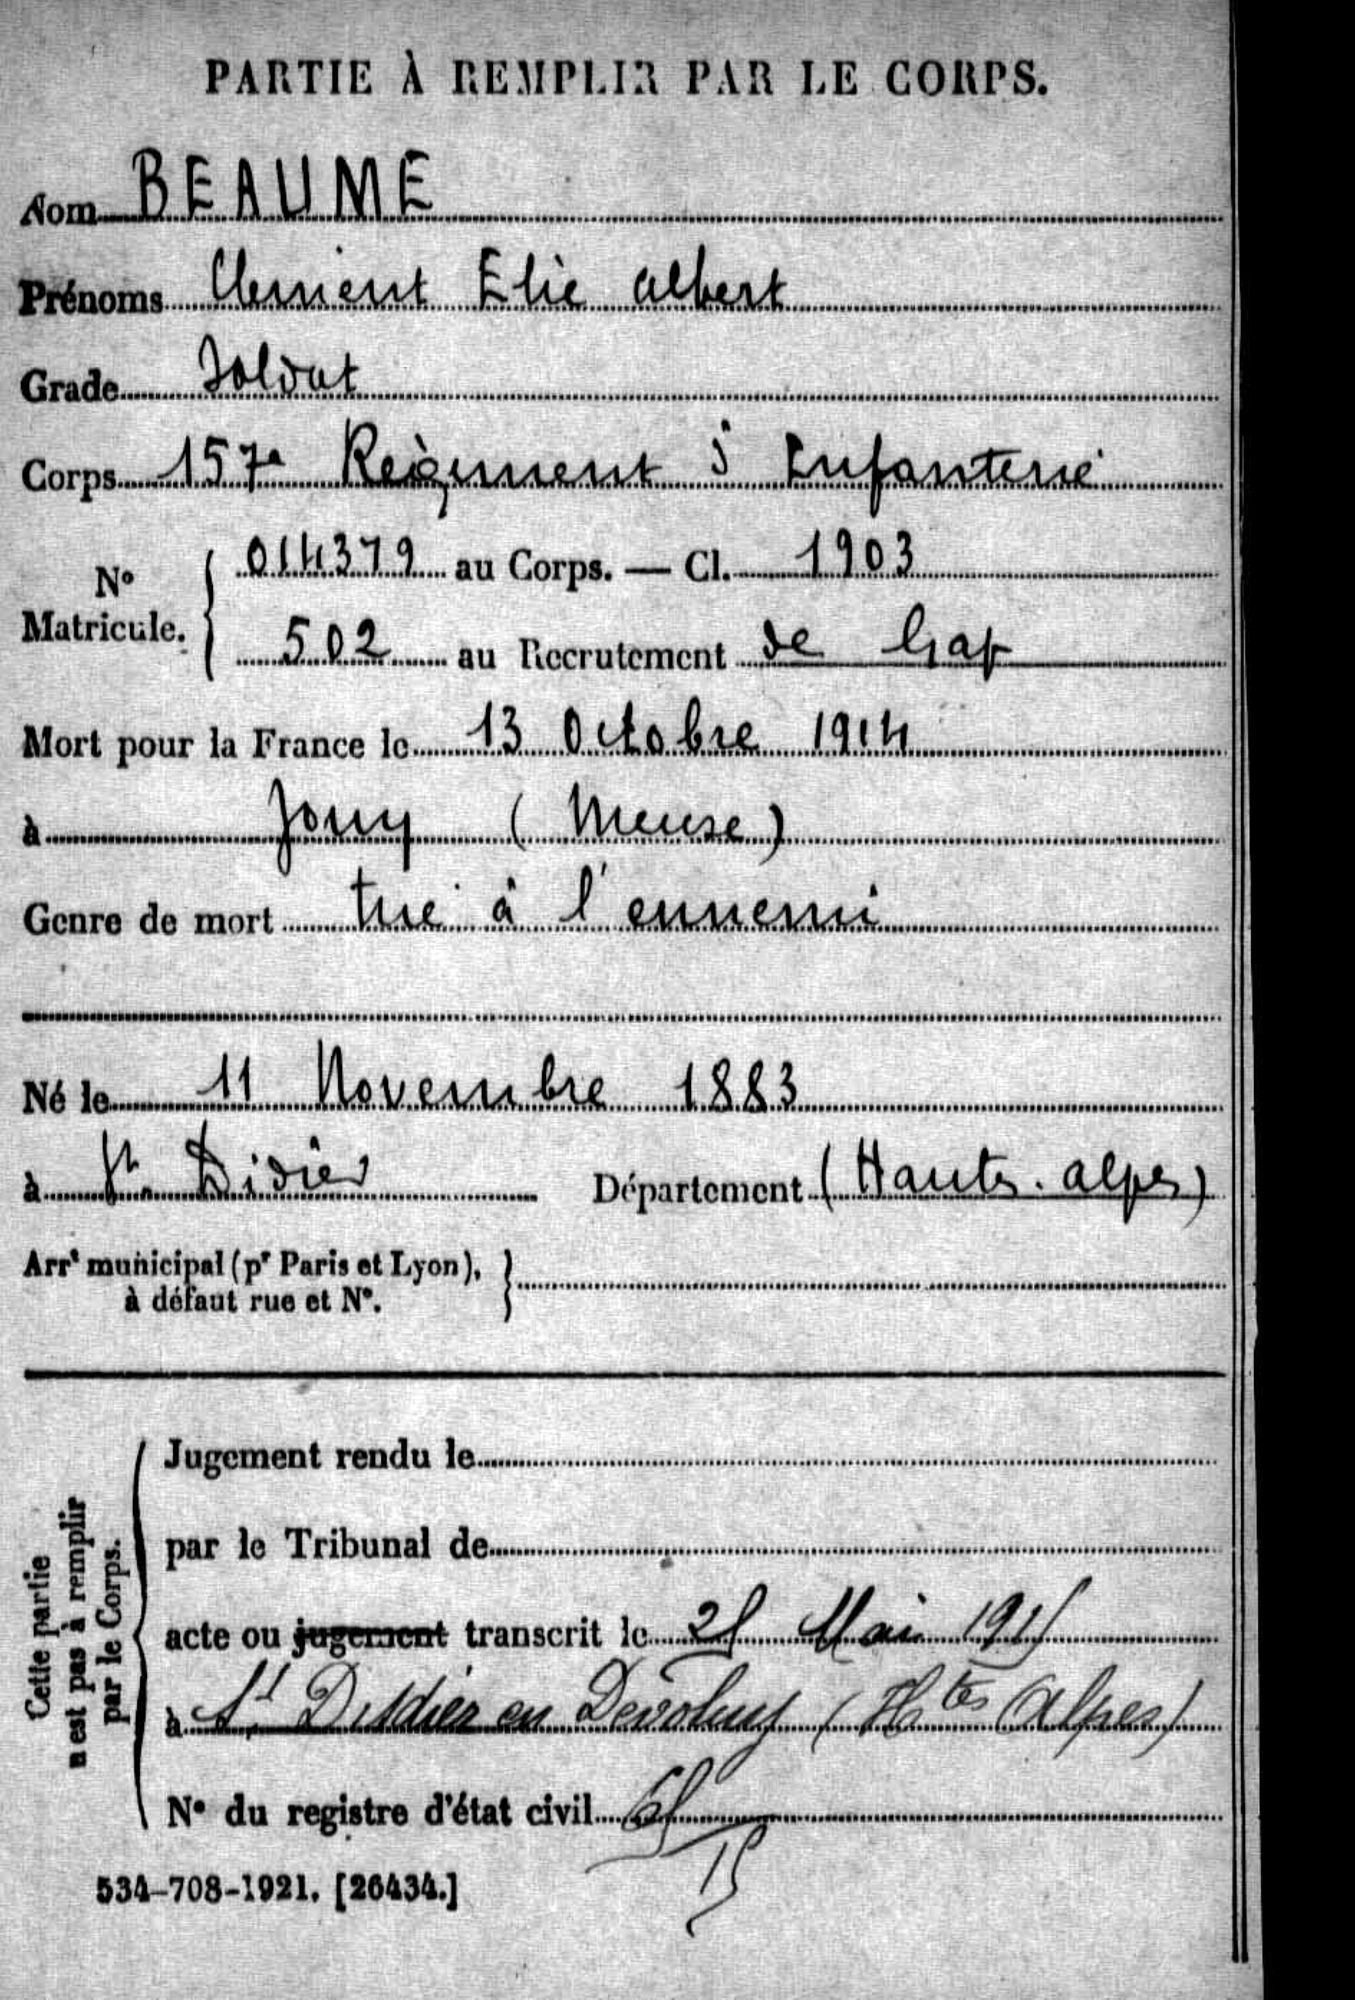 PARTIE À REMPLIR PAR LE CORPS.
Nom BEAUME
Prénoms Clement Elie Albert
Grade Soldat
Corps 157e Régiment d'Infanterie
N° Matricule. 014379 au Corps. — Cl. 1903
502 au Recrutement de Gap
Mort pour la France le 13 Octobre 1914
à Jouy (Meuse)
Genre de mort tué à l'ennemi
Né le 11 Novembre 1883
à St. Didier Département (Hautes-Alpes)
Arrt municipal (pr Paris et Lyon),
à défaut rue et N°.
Cette partie
n'est pas à remplir
par le Corps.
Jugement rendu le
par le Tribunal de
acte ou jugement transcrit le 25 Mai 1915
à St Disdier en Devoluy (Htes Alpes)
N° du registre d'état civil
534-708-1921. [26434.]